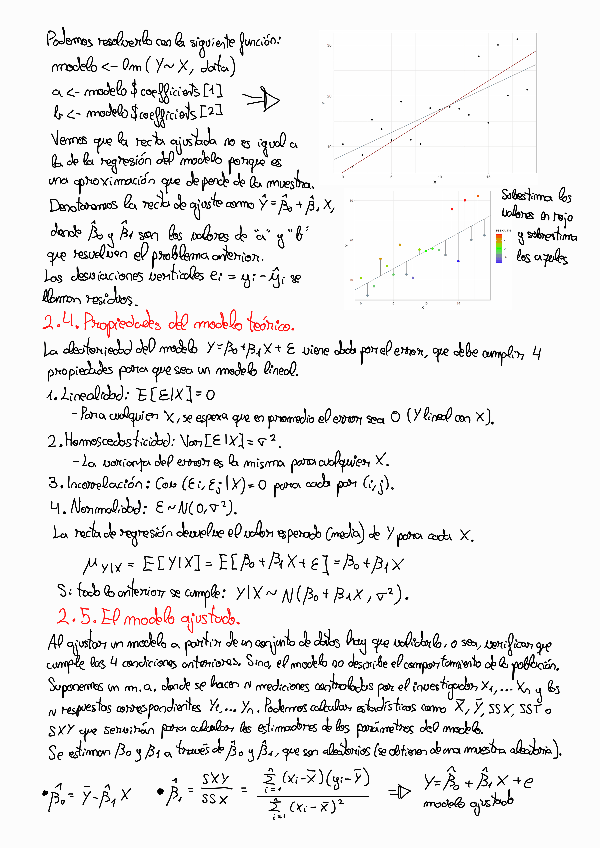 Podemos resolverlo con la siguiente función:
modelo <- lm(Y~X, data)
a <- modelo$coefficients[1]
b <- modelo$coefficients[2]
Vemos que la recta ajustada no es igual a
la de la regresión del modelo porque es
una aproximación que depende de la muestra.
Denotaremos la recta de ajuste como Ŷ = β̂₀ + β̂₁X,
donde β̂₀ y β̂₁ son los valores de "a" y "b"
que resuelven el problema anterior.
Las desviaciones verticales eᵢ = yᵢ - ŷᵢ se
llaman residuos.
Subestima los
valores en rojo
y sobrestima
los azules
2.4. Propiedades del modelo teórico.
La aleatoriedad del modelo Y=β₀+β₁X+ε viene dada por el error, que debe cumplir 4
propiedades para que sea un modelo lineal.
1. Linealidad: E[ε|X]=0
- Para cualquier X, se espera que en promedio el error sea 0 (Y lineal con X).
2. Homoscedasticidad: Var[ε|X]=σ².
- La varianza del error es la misma para cualquier X.
3. Incorrelación: Cov(εᵢ,εⱼ|X)=0 para cada par (i,j).
4. Normalidad: ε~N(0,σ²).
La recta de regresión devuelve el valor esperado (media) de Y para cada X.
μ_Y|X = E[Y|X] = E[β₀+β₁X+ε] = β₀+β₁X
Si todo lo anterior se cumple: Y|X ~ N(β₀+β₁X, σ²).
2.5. El modelo ajustado.
Al ajustar un modelo a partir de un conjunto de datos hay que validarlo, o sea, verificar que
cumple las 4 condiciones anteriores. Sino, el modelo no describe el comportamiento de la población.
Suponemos un m.a. donde se hacen N mediciones controladas por el investigador X₁,... Xₙ y las
N respuestas correspondientes Y₁... Yₙ. Podemos calcular estadísticos como X̄, Ȳ, SSX, SST o
SXY que servirán para calcular los estimadores de los parámetros del modelo.
Se estiman β₀ y β₁ a través de β̂₀ y β̂₁, que son aleatorios (se obtienen de una muestra aleatoria).
• β̂₀ = Ȳ - β̂₁X̄ • β̂₁ = SXY / SSX = Σⁿᵢ₌₁ (xᵢ-X̄)(yᵢ-Ȳ) / Σⁿᵢ₌₁ (xᵢ-x̄)² => Y=β̂₀+β̂₁X+e
modelo ajustado